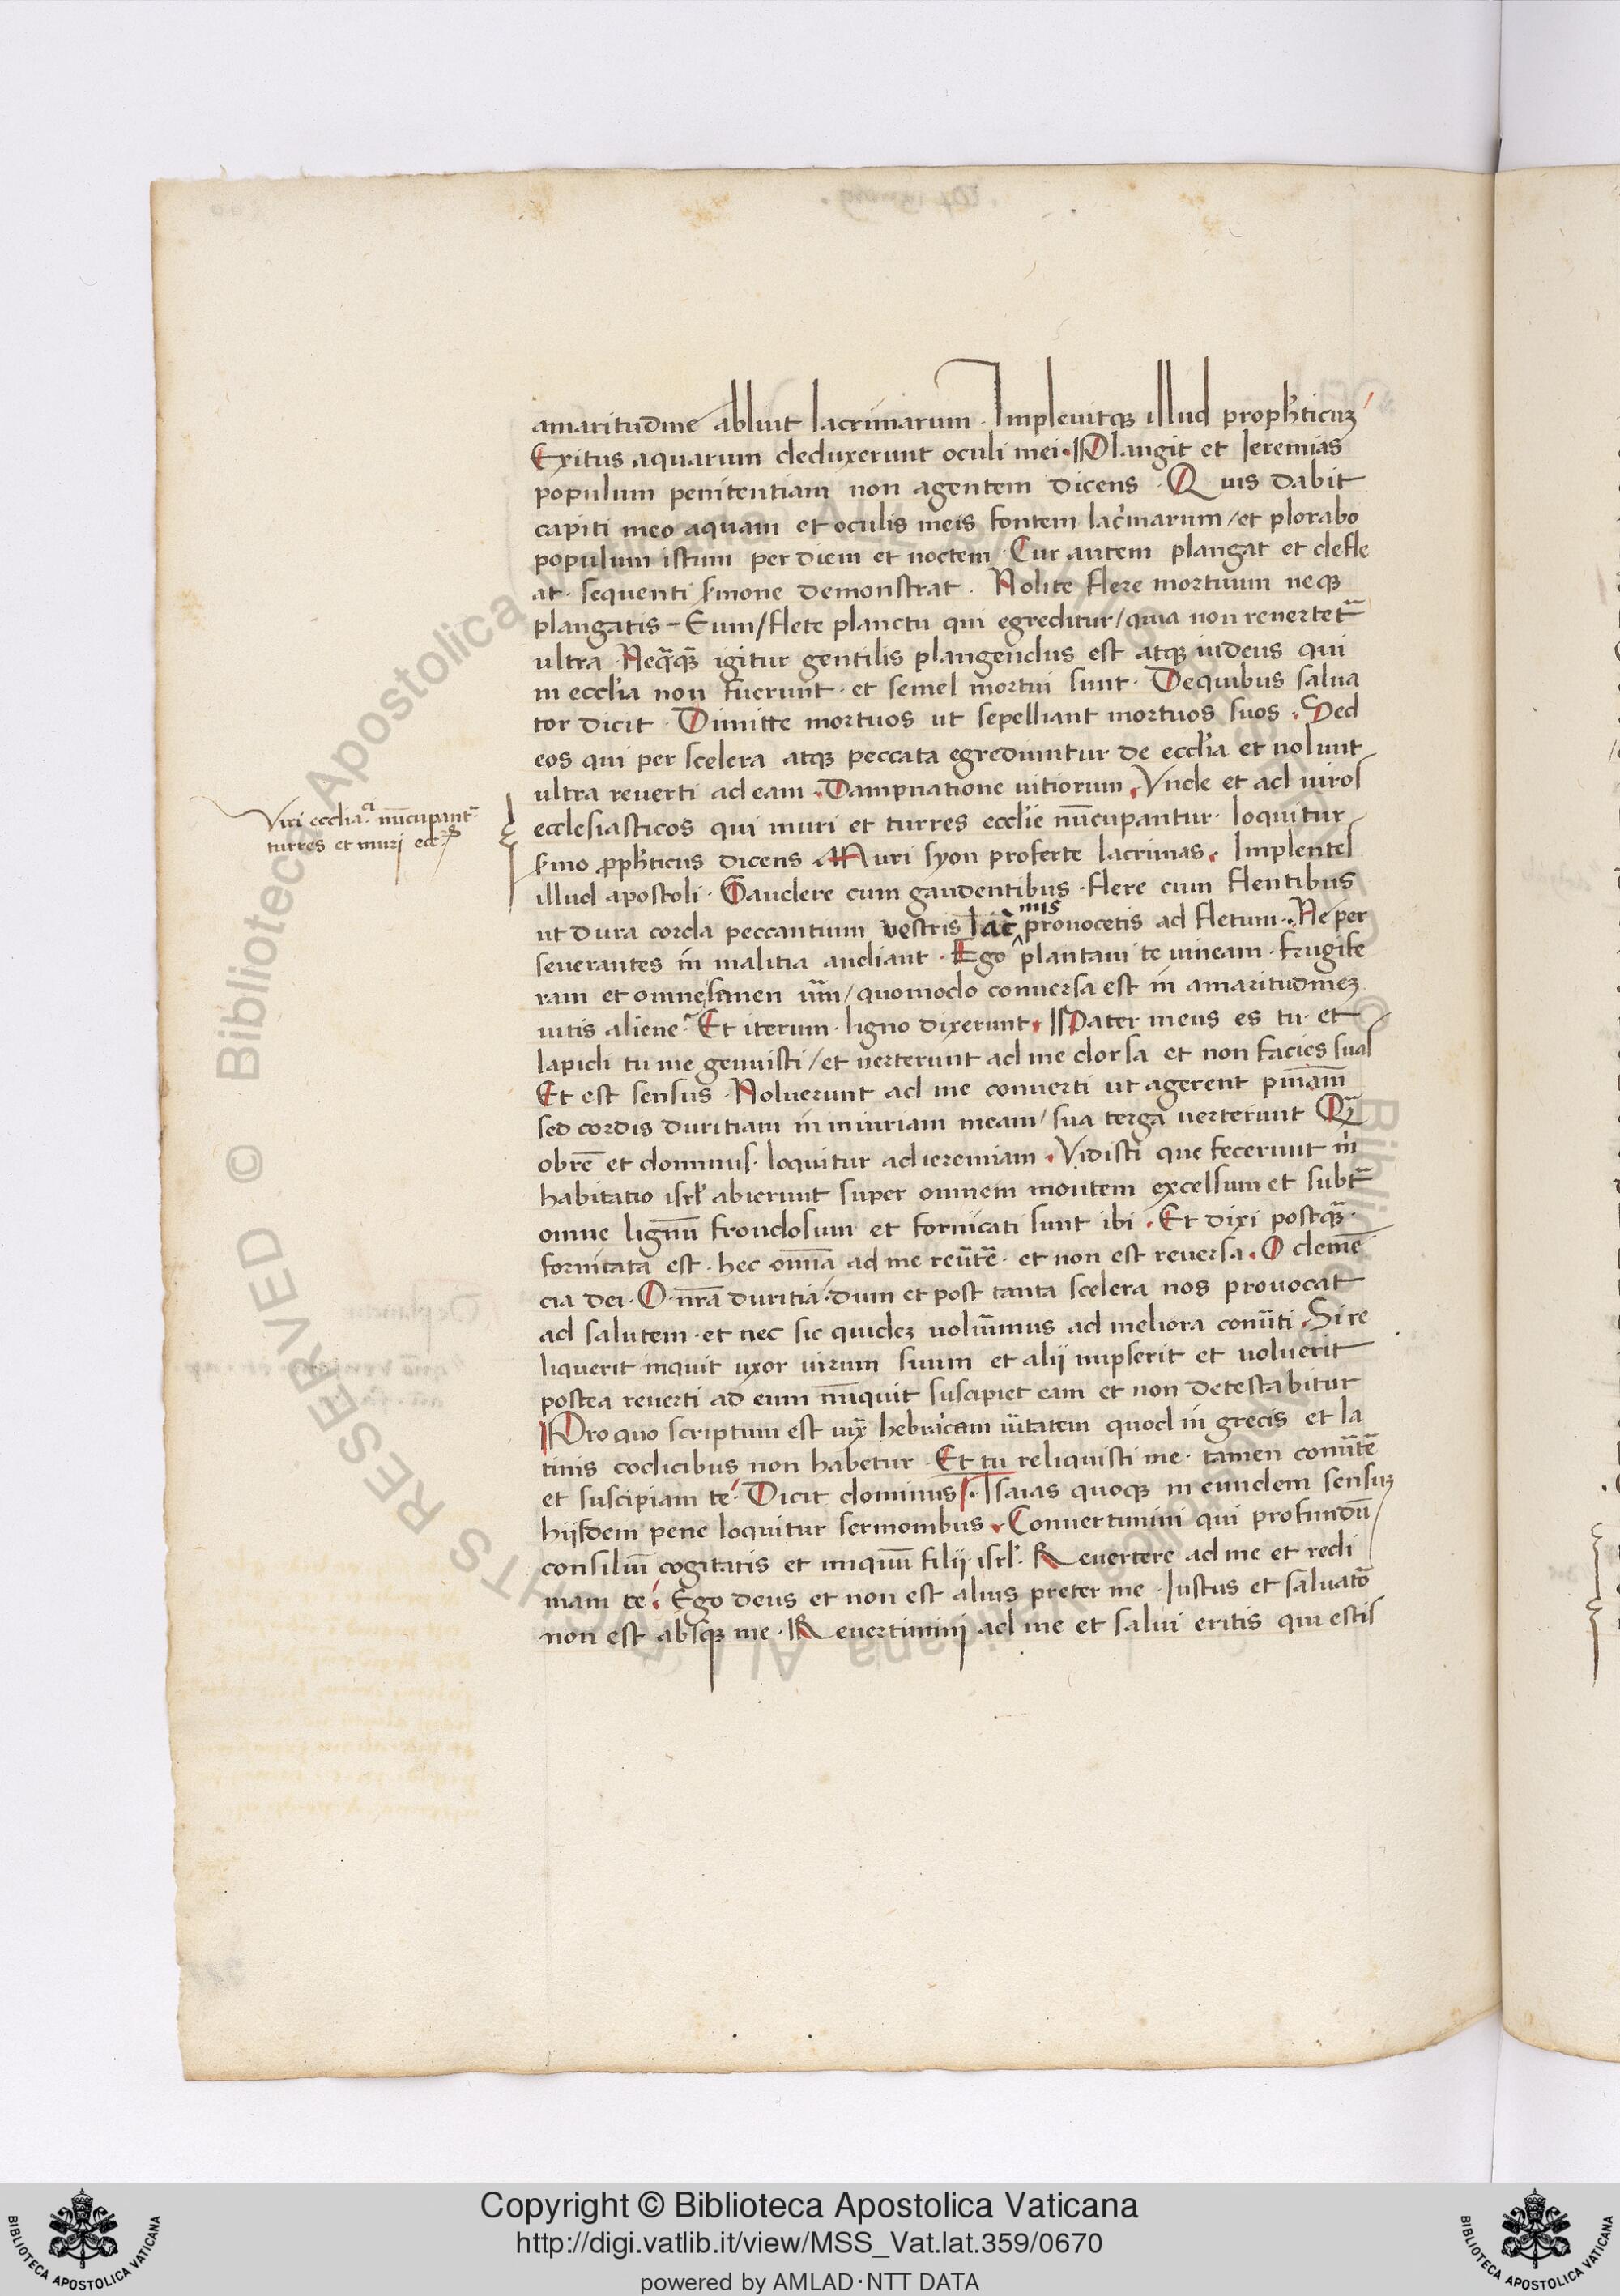 amaritudine abluit lacrimarum · Impleuitq̃ illud proph̃ticuȝ
Exitus aquarum deduxerunt oculi mei · Plangit et Ieremias
populum penitentiam non agentem dicens · Quis dabit
capiti meo aquam et oculis meis fontem lac̃marum / et plorabo
populum istum per diem et noctem · Cur autem plangat et defle
at · sequenti s̃mone demonstrat · Nolite flere mortuum neqȝ
plangatis – Eum / flete planctu qui egreditur / quia non reuertet̃
ultra · Neq̃q̃ igitur gentilis plangendus est atqȝ iudeus qui
in eccl̃ia non fuerunt · et semel mortui sunt · De quibus salua
tor dicit · Dimitte mortuos ut sepelliant mortuos suos · Sed
eos qui per scelera atqȝ peccata egrediuntur de eccl̃ia et nolunt
ultra reuerti ad eam · Dampnatione uitiorum · Vnde et ad uiros
ecclesiasticos qui muri et turres eccl̃ie nũcupantur · loquitur
s̃mo p̃ph̃ticus dicens · Muri syon proferte lacrimas · Implentes
illud apostoli · Gaudere cum gaudentibus · flere cum flentibus
mis
ut dura corda peccantium vestris lac̃ prouocetis ad fletum · Ne per
seuerantes in malitia audiant · Ego plantaui te uineam · frugife
ram et omne semen um̃ / quomodo conuersa est in amaritudineȝ
uitis aliene · Et iterum · ligno dixerunt · Pater meus es tu · et
lapidi tu me genuisti / et uerterunt ad me dorsa et non facies suas
Et est sensus · Noluerunt ad me conuerti ut agerent pñiam
sed cordis duritiam in iniuriam meam / sua terga uerterunt Q̃
obrẽ et dominus · loquitur ad ieremiam · Vidisti que fecerunt m̃
habitatio isrl̃ abierunt super omnem montem excelsum et subt̃
omne lignũ frondosum et fornicati sunt ibi · Et dixi postq̃ ·
fornicata est · hec om̃ia ad me reũtẽ · et non est reuersa · O clemẽ
cia dei · O nr̃a duritia · dum et post tanta scelera nos prouocat
ad salutem · et nec sic quideȝ uolũmus ad meliora conũti · Si re
liquerit inquit uxor uirum suum et alij nupserit et uoluerit
postea reuerti ad eum nũquit suscipiet eam et non detestabitur
Pro quo scriptum est iux̃ hebraicam ũitatem quod in grecis et la
tinis codicibus non habetur · Et tu reliquisti me · tamen conũtẽ
et suscipiam te · Dicit dominus · Isaias quoqȝ in eundem sensuȝ
hijsdem pene loquitur sermonibus · Conuertimini qui profundũ
consiliũ cogitatis et iniquũ filij isrl̃ · Reuertere ad me et redi
mam te · Ego deus et non est alius preter me · Iustus et saluatõ
non est absqȝ me · Reuertimini ad me et salui eritis qui estis
Viri eccl̃ia.ci nũcupant̃
turres et muri
Copyright © Biblioteca Apostolica Vaticana
http://digi.vatlib.it/view/MSS_Vat.lat.359/0670
powered by AMLAD·NTT DATA
BIBLIOTECA APOSTOLICA VATICANA
BIBLIOTECA APOSTOLICA VATICANA